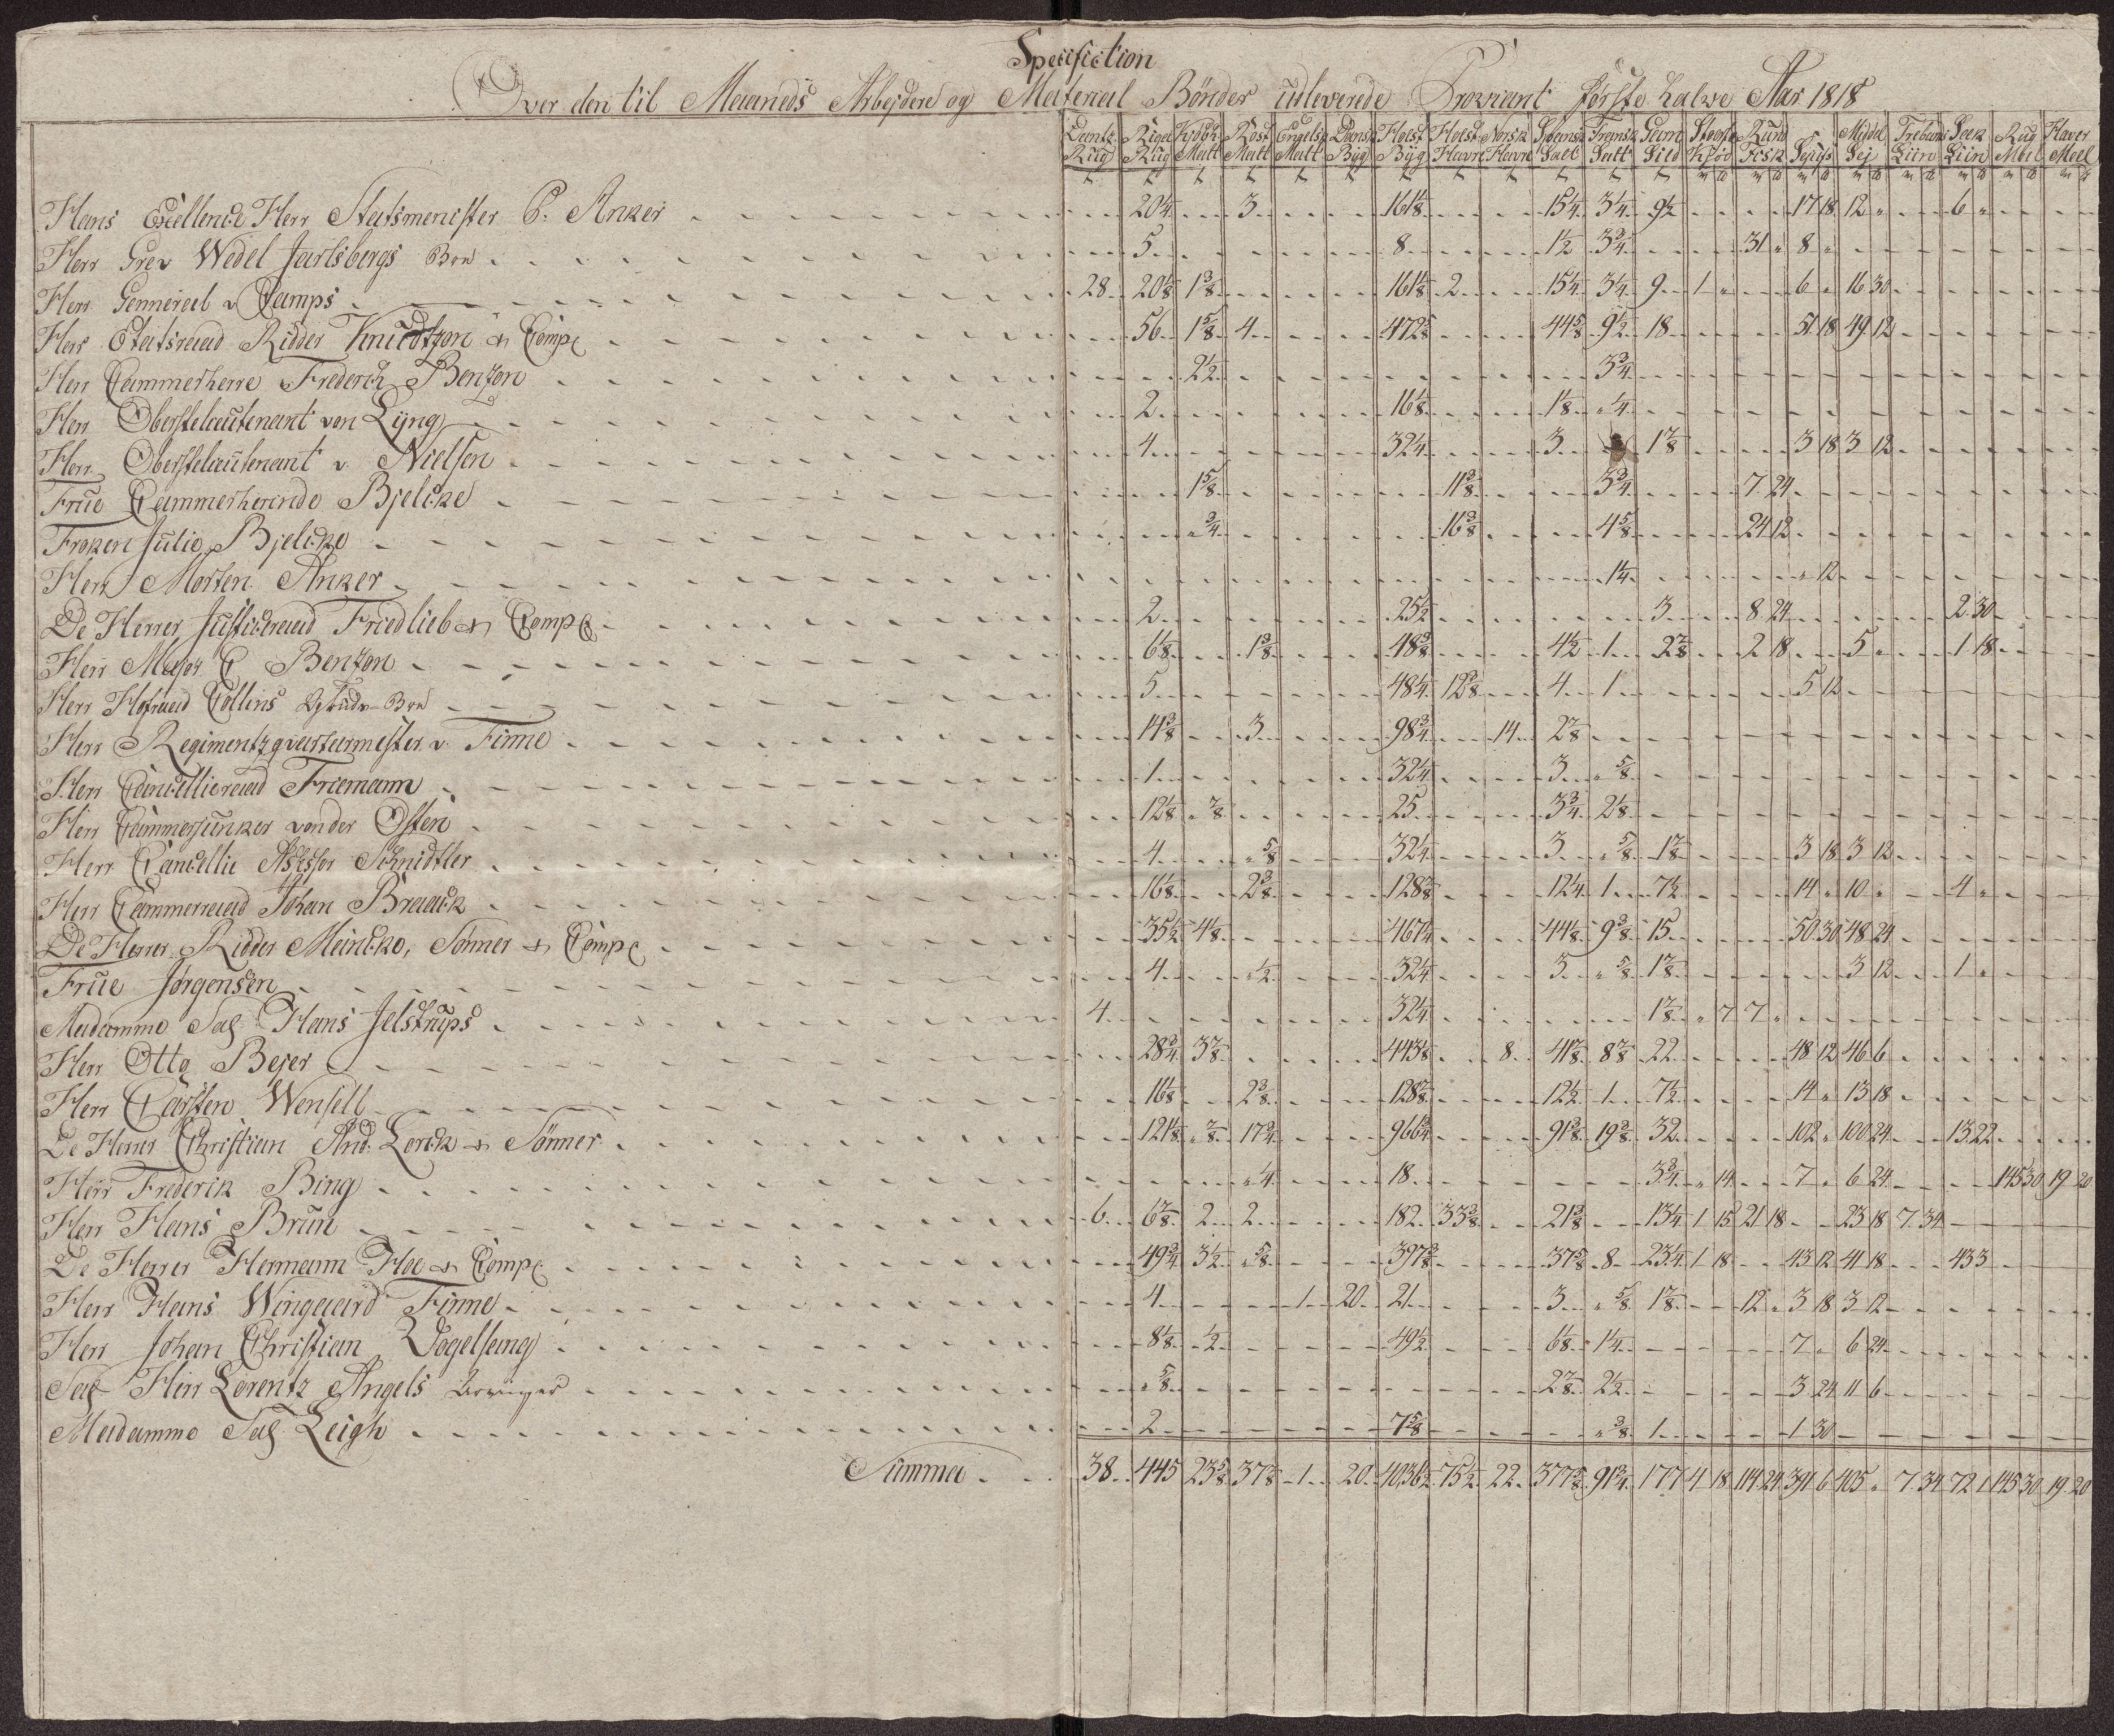 Specifiction
Over den til Maaneds Arbejdere og Material Bönder udleverede Proviant første halve Aar 1818
Dantz Rug | Rigas Rug | Malt | Rost Malt | Engelsk Malt | Dansk Byg | Holst Byg | Holst Havre | Norsk Havre | Spansk Salt | Fransk Salt | Garn Sild | Kiød | Rund Fisk | Sej | Middel Sej | Liin | Sek Liin | Rug Mel | Haver Meel
Hans Excellence Herr Statsmenister C. Anker 20¼ 3 161⅛ 15¼ 3¼ 9½ 17 18 12 „ 6 „
Herr Grev Wedel Jarlsbergs Boe 5 8 1½ 3¾ 31 „ 8 „
Herr Gennerael v Camps 28 20⅛ 1⅜ 161⅛ 2 15¼ 3¼ 9 1 „ 6 „ 16 30
Herr Etatsraad Ridder Knudtzon & Comp 56 1⅝ 4 472⅝ 44⅝ 9½ 18 51 18 49 12
Herr Cammerherre Frederich Benzon 2½ 3¾
Herr Oberstelautenant von Lyng 2 16⅛ 1⅛ „¼
Herr Oberstelautenant v. Nielsen 4 32¼ 3 1⅞ 3 18 3 12
Frue Cammerherinde Bjelcke 1⅝ 11⅜ 3¾ 7 24
Frøken Julie Bjelcke „¾ 16⅜ 4⅝ 24 12
Herr Morten Anker 1¼ „ 12
De Herrer Justitsraad Friedlieb & Comp 2 25½ 3 8 24 2 30
Herr Major C Benzon 6⅛ 1⅜ 48⅜ 4½ 1 2⅞ 2 18 5 „ 1 18
Herr Hofraad Collins Boe 5 48¼ 12⅜ 4 1 5 12
Herr Regimentzqvartermester v. Finne 14⅜ 3 98¾ 14 2⅞
Herr Cancelliraad Friemann 1 32¼ 3 „⅝
Herr Cammerjunker von der Osten 12⅛ „⅞ 25 3¾ 2⅛
Herr Cancellie Assessor Schnidtler 4 „⅝ 32¼ 3 „⅝ 1⅞ 3 18 3 12
Herr Cammerraad Johan Braack 16⅛ 2⅜ 128⅞ 12¼ 1 7½ 14 „ 10 „ 4 „
De Herrer Ridder Meincke, Sønner & Comp 55½ 4⅛ 467¼ 44⅛ 9⅜ 15 50 30 48 24
Frue Jørgensen 4 „½ 32¼ 3 „⅝ 1⅞ 3 12 1 „
Madamme Sal Hans Jelstrups 4 32¼ 1⅞ „ 7 7 „
Herr Otto Bejer 28¾ 3⅞ 443⅛ 8 41⅞ 8⅞ 22 48 12 46 6
Herr Carsten Wensell 16⅛ 2⅜ 128⅞ 12½ 1 7½ 14 „ 13 18
De Herrer Christian And. Lorck & Sønner 121⅛ „⅞ 17¾ 966¾ 91⅜ 19⅜ 32 102 „ 100 24 13 22
Herr Frederik Bing „¼ 18 3¾ „ 14 7 „ 6 24 145 30 19 20
Herr Hans Brun 6 6⅞ 2 2 182 33⅜ 21⅜ 13¼ 1 15 21 18 23 18 7 34
De Herrer Hermann Hoe & Comp 49¾ 3½ „⅝ 397⅜ 37⅝ 8 23¼ 1 18 43 12 41 18 43 3
Herr Hans Wingaard Finne 4 1 20 21 3 „⅝ 1⅞ 12 „ 3 18 3 12
Herr Johan Christian Vogelsang 8⅛ ½ 49½ 6⅛ 1¼ 7 „ 6 24
Sal Herr Lorentz Angels Arvinger „⅝ 2⅞ 2½ 3 24 11 6
Madamme Sal Leigh 2 7⅝ „⅜ 1 1 30
Summa 38 445 23⅝ 37⅞ 1 20 4036½ 75½ 22 377⅝ 91¾ 177 4 18 114 24 391 6 405 „ 7 34 72 1 145 30 19 20